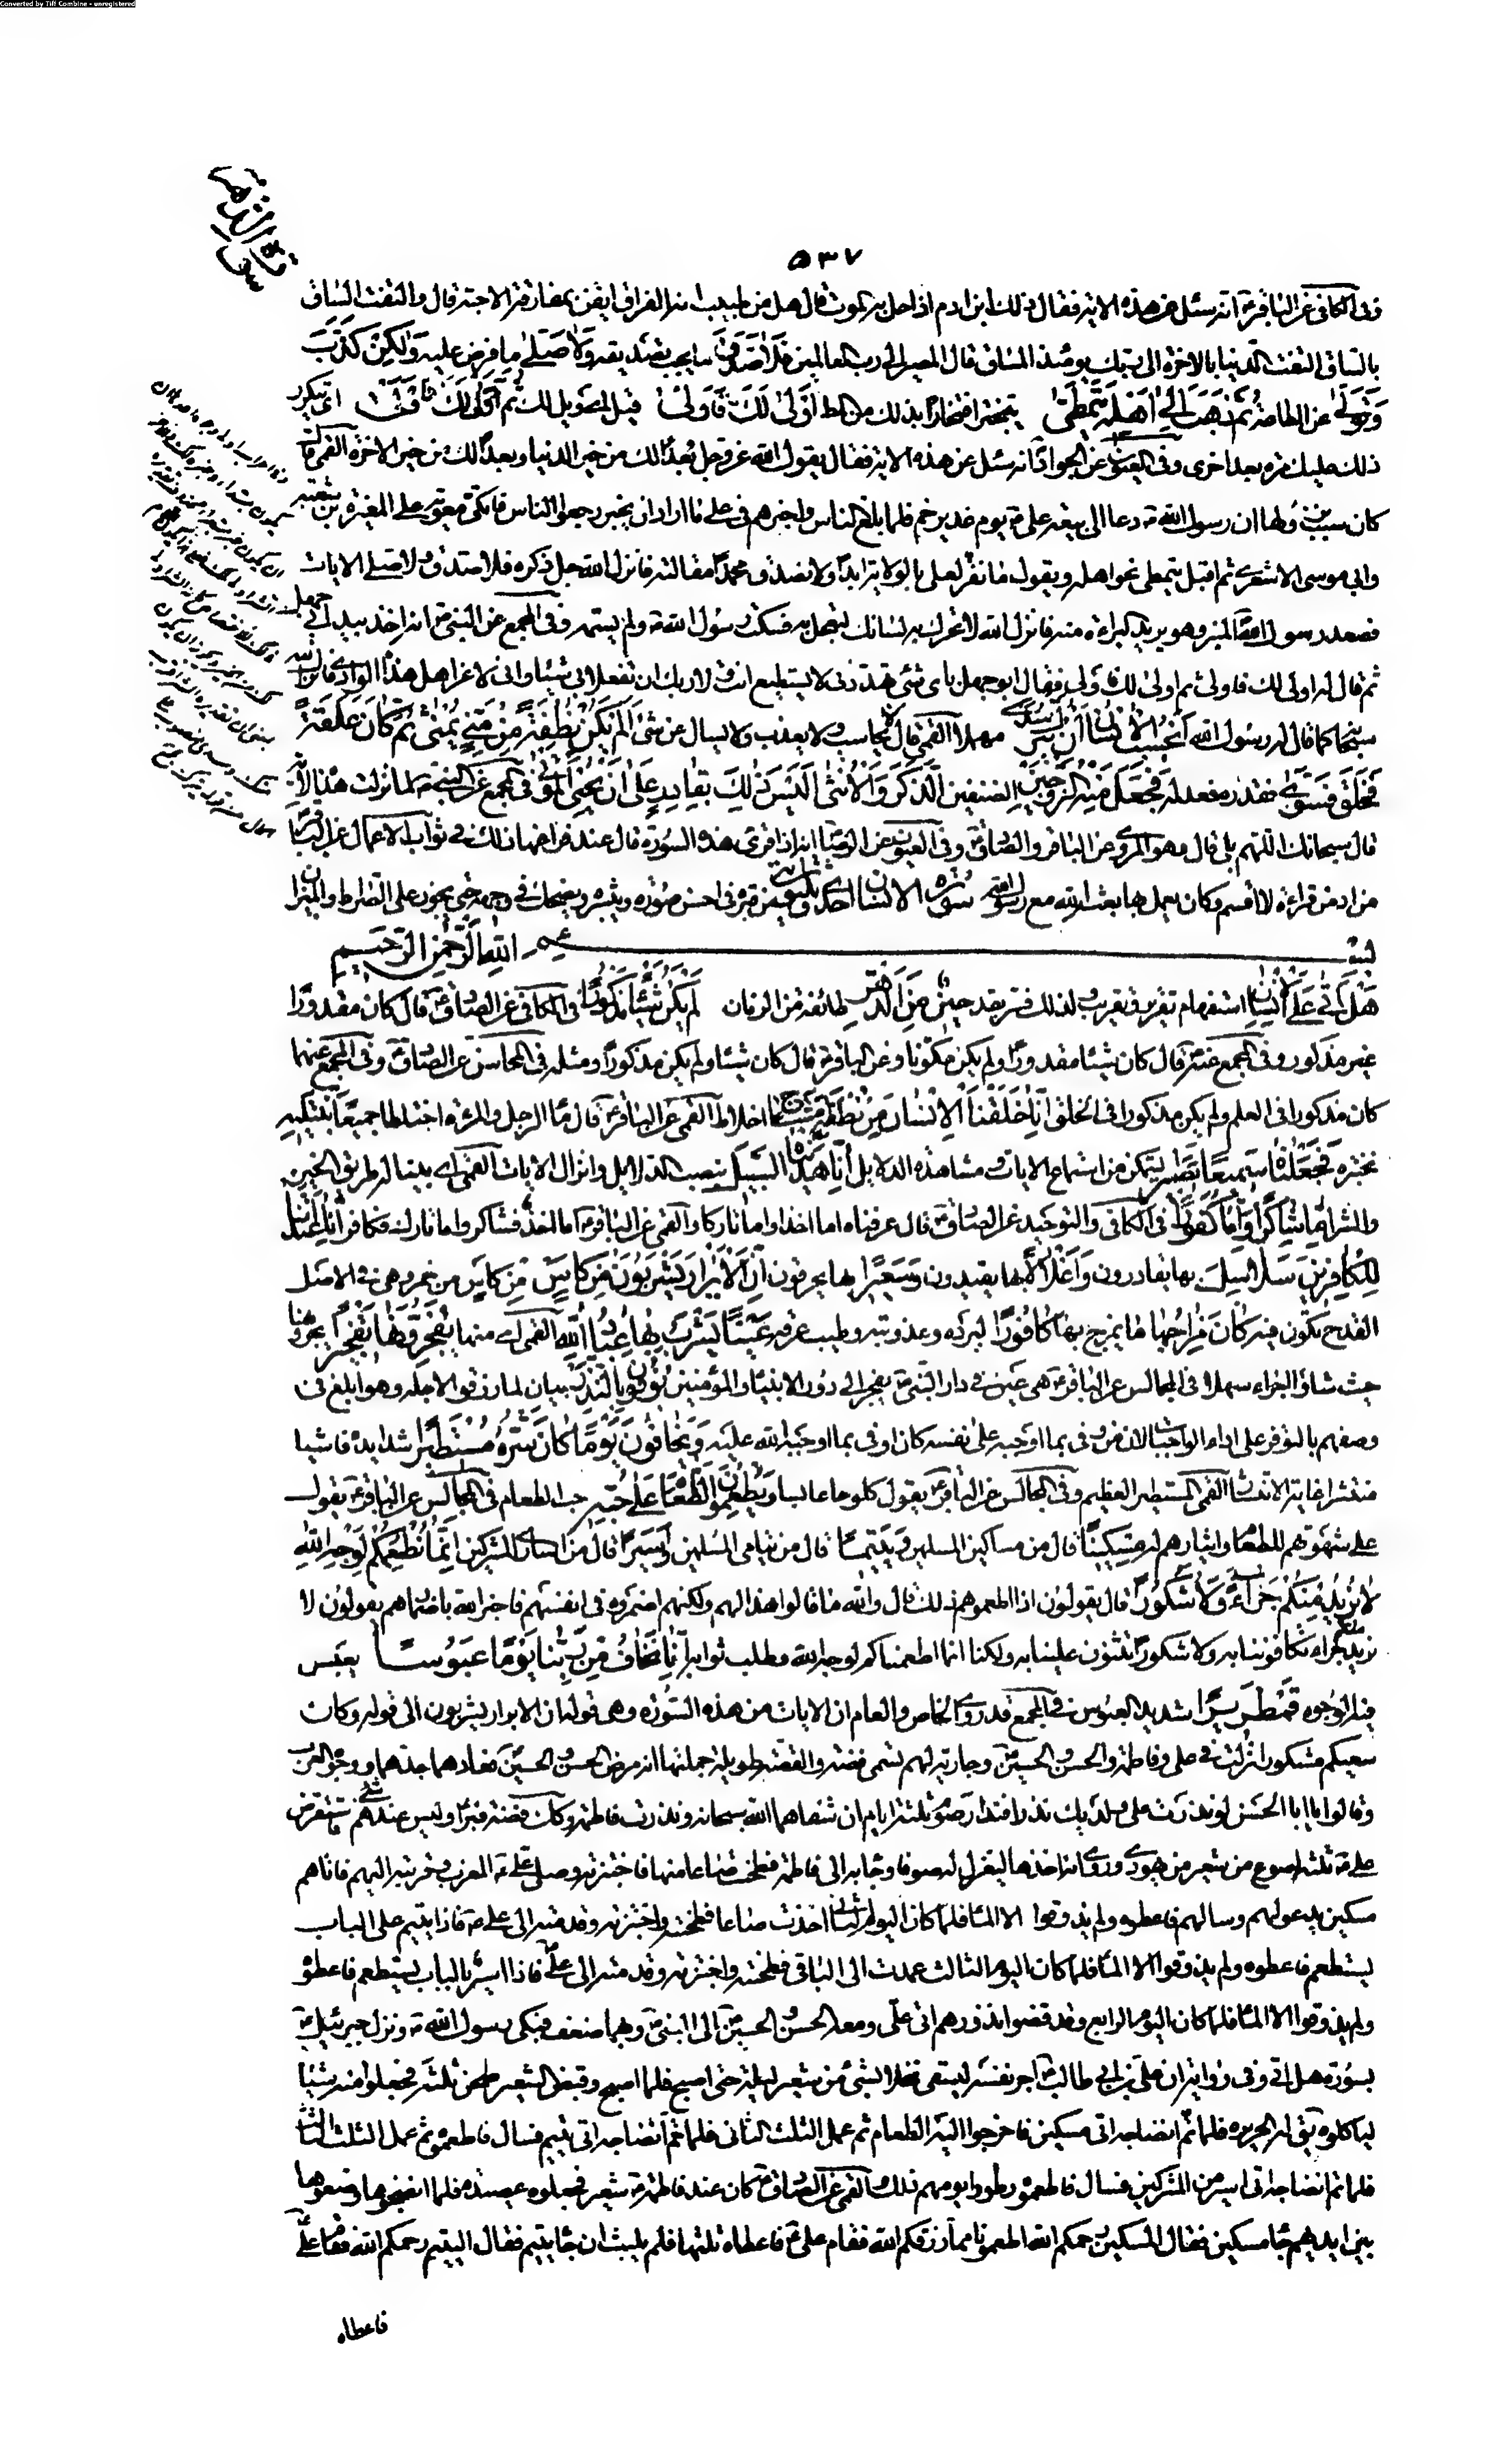 Converted by Tiff Combine - unregistered
سورة الدهر
۵۳۷
وفى الكافى عن الباقر ع انه سئل عن هذه الاية فقال ذلك ابن ادم اذا حل به الموت قال هل من طبيب انه الفراق ايقن بمفارقة الاحبة قال والتفت الساق
بالساق التفت الدنيا بالاخرة الى ربك يومئذ المساق قال المصير الى رب العالمين فَلا صَدَّقَ ما يجب تصديقه وَلا صَلّى ما فرض عليه وَلكِنْ كَذَّبَ
وَتَوَلّى عن الطاعة ثُمَّ ذَهَبَ اِلى اَهْلِهِ يَتَمَطّى يتبختر افتخارا بذلك من المط اَوْلى لَكَ فَاَوْلى قيل اى ويل لك ثُمَّ اَوْلى لَكَ فَاَوْلى اى يتكرر
ذلك عليك مرة بعد اخرى وفى العيون عن الجواد ع انه سئل عن هذه الاية فقال يقول الله عز وجل بعدا لك من خير الدنيا وبعدا لك من خير الاخرة القمى
كان سبب نزولها ان رسول الله ص دعا الى بيعة على ع يوم غدير خم فلما بلغ الناس واخبرهم فى على ما اراد ان يخبر رجعوا الناس فاتكى معوية على المغيرة بن شعبة
وابى موسى الاشعرى ثم اقبل يتمطى نحو اهله ويقول ما نقر لعلى بالولاية ابدا ولا نصدق محمدا مقالته فانزل الله جل ذكره فلا صدق ولا صلى الايات
فصعد رسول الله المنبر وهو يريد البراءة منه فانزل الله لا تحرك به لسانك لتعجل به فسكت رسول الله ص ولم يسمه وفى المجمع عن النبى ص انه اخذ بيد ابى جهل
ثم قال له اولى لك فاولى ثم اولى لك فاولى فقال ابو جهل باى شئ تهددنى لا يستطيع انت ولا ربك ان تفعلا بى شيئا وانى لاعز اهل هذا الوادى فانزل الله
سبحانه كما قال له رسول الله اَيَحْسَبُ الْاِنْسانُ اَنْ يُتْرَكَ سُدًى مهملا القمى قال لا يحاسب ولا يعذب ولا يسال عن شئ اَلَمْ يَكُ نُطْفَةً مِنْ مَنِىٍّ يُمْنى ثُمَّ كانَ عَلَقَةً
فَخَلَقَ فَسَوّى فقدره فعدله فَجَعَلَ مِنْهُ الزَّوْجَيْنِ الصنفين الذَّكَرَ وَالْاُنْثى اَلَيْسَ ذلِكَ بِقادِرٍ عَلى اَنْ يُحْيِىَ الْمَوْتى فى المجمع عن النبى ص لما نزلت هذه الاية
قال سبحانك اللهم بلى قال وهو المروى عن الباقر والصادق ع وفى العيون عن الرضا انه اذا قرئ هذه السورة قال عند فراغها ذلك فى ثواب الاعمال عن الباقر
من ادمن قراءة لا اقسم وكان يعمل بها بعثه الله مع رسول الله سورة الانسان احدى وثلثون اية من قبره فى احسن صورة ويبشره ويضحك فى وجهه حتى يجوز على الصراط والميزان
بسم الله الرحمن الرحيم
هَلْ اَتى عَلَى الْاِنْسانِ استفهام تقرير وتقريب ولذلك فسر بقد حينٌ مِنَ الدَّهْرِ طائفة من الزمان لَمْ يَكُنْ شَيْئًا مَذْكُورًا فى الكافى عن الصادق ع قال كان مقدورا
غير مذكور وفى المجمع عنه ع قال كان شيئا مقدورا ولم يكن مكونا وعن الباقر ع قال كان شيئا ولم يكن مذكورا ومثله فى المحاسن عن الصادق ع وفى المجمع عنهما
كان مذكورا فى العلم ولم يكن مذكورا فى الخلق اِنّا خَلَقْنَا الْاِنْسانَ مِنْ نُطْفَةٍ اَمْشاجٍ اخلاط القمى عن الباقر ع قال ماء الرجل والمرءة اختلطا جميعا نَبْتَليهِ
نختبره فَجَعَلْناهُ سَميعًا بَصيرًا ليتمكن من استماع الايات ومشاهدة الدلايل اِنّا هَدَيْناهُ السَّبيلَ بنصب الدلايل وانزال الايات القمى اى بينا له طريق الخير
والشر اِمّا شاكِرًا وَاِمّا كَفُورًا فى الكافى والتوحيد عن الصادق ع قال عرفناه اما اخذا واما تاركا والقمى عن الباقر ع اما اخذ فشاكر واما تارك فكافر اِنّا اَعْتَدْنا
لِلْكافِرينَ سَلاسِلَ بها يقادون وَاَغْلالًا بها يقيدون وَسَعيرًا بها يحرقون اِنَّ الْاَبْرارَ يَشْرَبُونَ مِنْ كَأْسٍ من خمر وهى فى الاصل
القدح تكون فيه كانَ مِزاجُها ما يمزج بها كافُورًا لبرده وعذوبته وطيب عرفه عَيْنًا يَشْرَبُ بِها عِبادُ اللّهِ القمى اى منها يُفَجِّرُونَها تَفْجيرًا يجرونها
حيث شاؤا اجراء سهلا فى المجالس عن الباقر ع هى عين فى دار النبى ص يفجر الى دور الانبياء والمؤمنين يُوفُونَ بِالنَّذْرِ بيان لما رزقوا لاجله وهو ابلغ فى
وصفهم بالتوفر على اداء الواجبات لان من وفى بما اوجبه على نفسه كان اوفى بما اوجبه الله عليه وَيَخافُونَ يَوْمًا كانَ شَرُّهُ مُسْتَطيرًا شدايده فاشيا
منتشرا غاية الانتشار القمى المستطير العظيم وفى المجالس عن الباقر ع يقول كلوحا عابسا وَيُطْعِمُونَ الطَّعامَ عَلى حُبِّهِ حب الطعام فى المجالس عن الباقر ع يقول
على شهوتهم للطعام وايثارهم له مِسْكينًا قال من مساكين المسلمين وَيَتيمًا قال من يتامى المسلمين وَاَسيرًا قال من اسارى المشركين اِنَّما نُطْعِمُكُمْ لِوَجْهِ اللّهِ
لا نُريدُ مِنْكُمْ جَزاءً وَلا شُكُورًا قال يقولون اذا اطعموهم ذلك قال والله ما قالوا هذا لهم ولكنهم اضمروه فى انفسهم فاخبر الله باضمارهم يقولون لا
نريد جزاء تكافوننا به ولا شكورا تثنون علينا به ولكنا انما اطعمناكم لوجه الله وطلب ثوابه اِنّا نَخافُ مِنْ رَبِّنا يَوْمًا عَبُوسًا يعبس
فيه الوجوه قَمْطَريرًا شديد العبوس فى المجمع قد روى الخاص والعام ان الايات من هذه السورة وهى قوله ان الابرار يشربون الى قوله وكان
سعيكم مشكورا نزلت فى على وفاطمة والحسن والحسين ع وجارية لهم تسمى فضة والقصة طويلة جملتها انه مرض الحسن والحسين ع فعادهما جدهما ووجوه العرب
وقالوا يا ابا الحسن لو نذرت على ولديك نذرا فنذر صوم ثلثة ايام ان شفاهما الله سبحانه ونذرت فاطمة وكذلك فضة فبرا وليس عندهم شئ فاستقرض
على ع ثلثة اصوع من شعير من يهودى وروى انه اخذها ليغزل له صوفا وجاء به الى فاطمة فطحنت صاعا منها فاختبزته وصلى على ع المغرب وقربته اليهم فاتاهم
مسكين يدعو لهم وسالهم فاعطوه ولم يذوقوا الا الماء فلما كان اليوم الثانى اخذت صاعا فطحنته واختبزته وقدمته الى على ع فاذا يتيم على الباب
يستطعم فاعطوه ولم يذوقوا الا الماء فلما كان اليوم الثالث عمدت الى الباقى فطحنته واختبزته وقدمته الى على ع فاذا اسير بالباب يستطعم فاعطوه
ولم يذوقوا الا الماء فلما كان اليوم الرابع وقد قضوا نذورهم اتى على ومعه الحسن والحسين ع الى النبى ص وبهما ضعف فبكى رسول الله ص ونزل جبرئيل ع
بسورة هل اتى وفى رواية ان على بن ابى طالب ع اجر نفسه ليستقى نخلا بشئ من شعير ليلة حتى اصبح فلما اصبح وقبض الشعير طحن ثلثه فجعلوا منه شيئا
لياكلوه يق له الحريرة فلما تم انضاجه اتى مسكين فاخرجوا اليه الطعام ثم عمل الثلث الثانى فلما تم انضاجه اتى يتيم فسال فاطعموه ثم عمل الثلث الثالث
فلما تم انضاجه اتى اسير من المشركين فسال فاطعموه وطووا يومهم ذلك والقمى عن الصادق ع كان عند فاطمة ع شعير فجعلوه عصيدة فلما انضجوها ووضعوها
بين ايديهم جاء مسكين فقال المسكين رحمكم الله اطعمونا مما رزقكم الله فقام على ع فاعطاه ثلثها فلم يلبث ان جاء يتيم فقال اليتيم رحمكم الله فقام على
فاعطاه